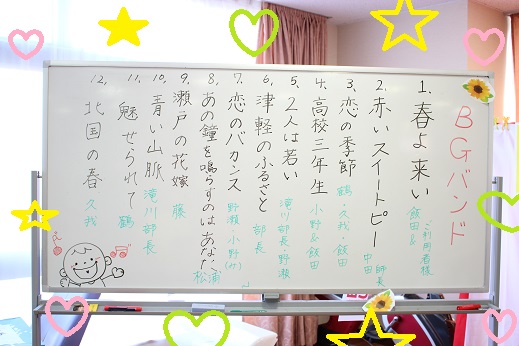 BGバンド
1. 春よ来い ご利用者様 飯田&
2. 赤いスイートピー 師長 中田
3. 恋の季節 鶴・久我・飯田
4. 高校三年生 小野&飯田
5. 2人は若い 滝川部長・野瀬
6. 津軽のふるさと 部長
7. 恋のバカンス 野瀬・小野(カ)
8. あの鐘を鳴らすのはあなた 松浦
9. 瀬戸の花嫁 藤
10. 青い山脈 滝川部長
11. 魅せられて 鶴
12. 北国の春 久我